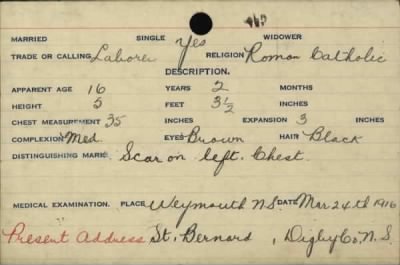 467
MARRIED SINGLE Yes WIDOWER
TRADE OR CALLING Laborer RELIGION Roman Catholic
DESCRIPTION.
APPARENT AGE 16 YEARS 2 MONTHS
HEIGHT 5 FEET 3½ INCHES
CHEST MEASUREMENT 35 INCHES EXPANSION 3 INCHES
COMPLEXION Med. EYES Brown HAIR Black
DISTINGUISHING MARKS Scar on left. Chest.
MEDICAL EXAMINATION. PLACE Weymouth N.S. DATE Mar 24th 1916
Present Address St. Bernard, Digby Co, N.S.